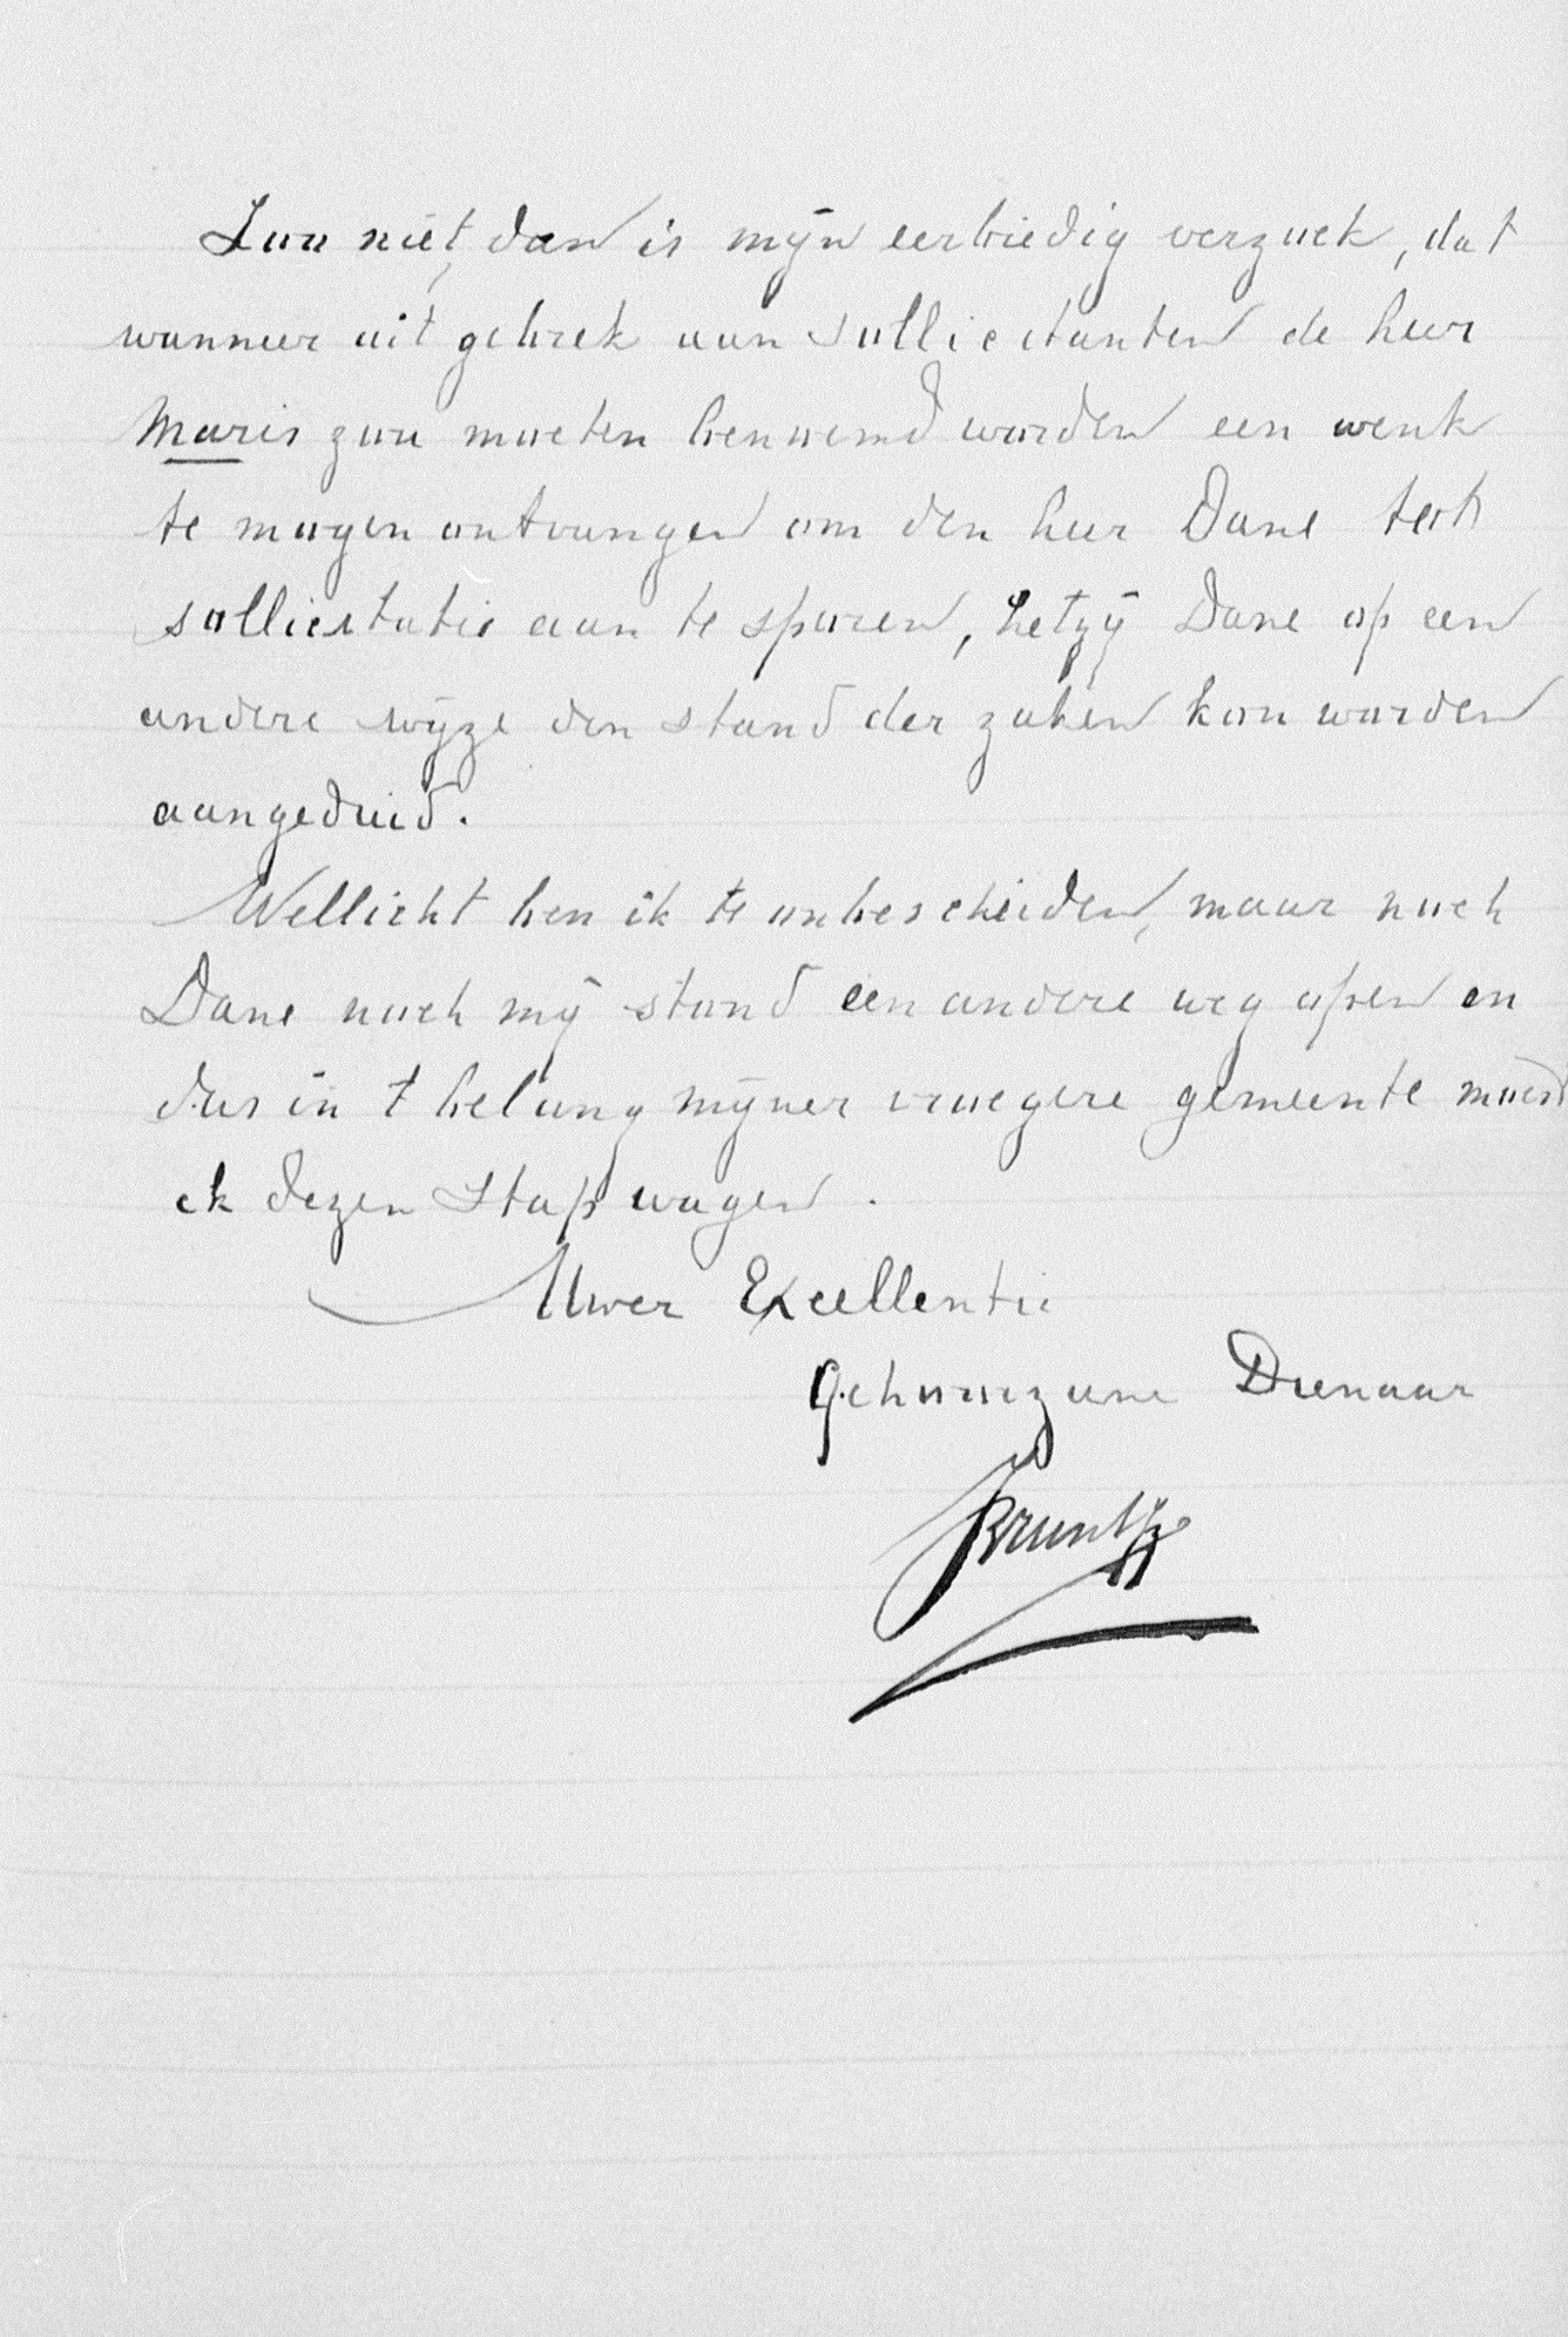 Zoo niet, dan is mijn eerbiedig verzoek, dat
wanneer uit gebrek aan sollicitanten de heer
Maris zou moeten benoemd worden een wenk
te mogen ontvangen om den heer Dane tot
sollicitatie aan te sporen, hetzij Dane op een
andere wijze den stand der zaken kon worden
aangeduid.
Wellicht ben ik te onbescheiden, maar noch
Dane noch mij stond een andere weg open en
dus in 't belang mijner vroegere gemeente moest
ik dezen stap wagen.
Uwer Excellentie
Gehoorzame Dienaar